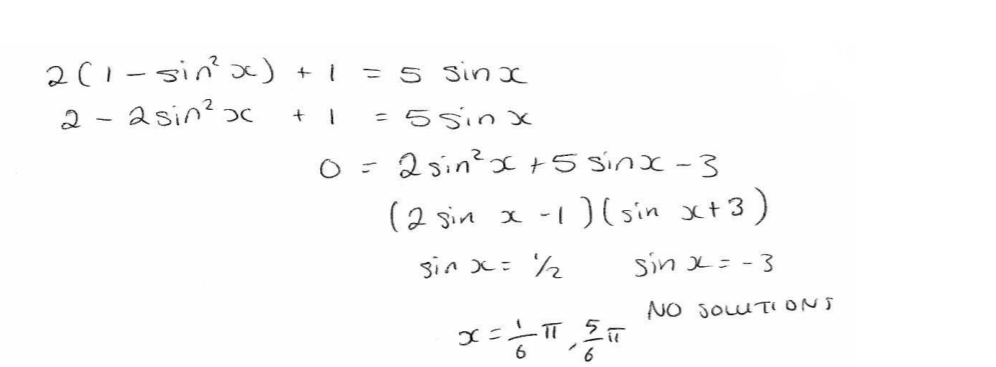 2(1 - sin² x) + 1 = 5 sin x
2 - 2sin² x + 1 = 5 sin x
0 = 2 sin² x + 5 sin x - 3
(2 sin x - 1)(sin x + 3)
sin x = 1/2 sin x = - 3
NO SOLUTIONS
x = 1/6 π, 5/6 π